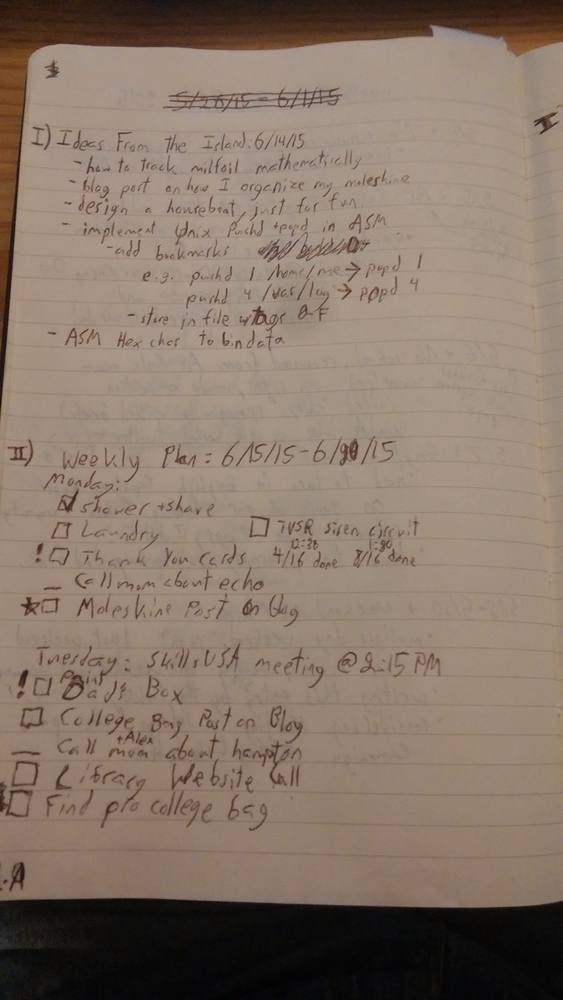 I) Ideas From the Island, 6/14/15
- how to track milfoil mathematically
- blog post on how I organize my moleskine
- design a houseboat, just for fun
- implement Unix pushd + popd in ASM
- add bookmarks
e.g. pushd 1 /home/me → popd 1
pushd 4 /var/log → popd 4
- store in file
- ASM Hex char to bin data
II) Weekly Plan = 6/15/15 - 6/ /15
Monday:
☑ shower + shave
☐ Laundry ☐ siren circuit
! ☐ Thank You cards 4/16 done 8/16 done
- Call mom about echo
* ☐ Moleskine Post on blog
Tuesday: SkillsUSA meeting @ 2:15 PM
! ☐ Paint Box
☐ College Bag Post on Blog
- Call mom + Alex about hampton
☐ Library Website Call
* ☐ Find pro college bag